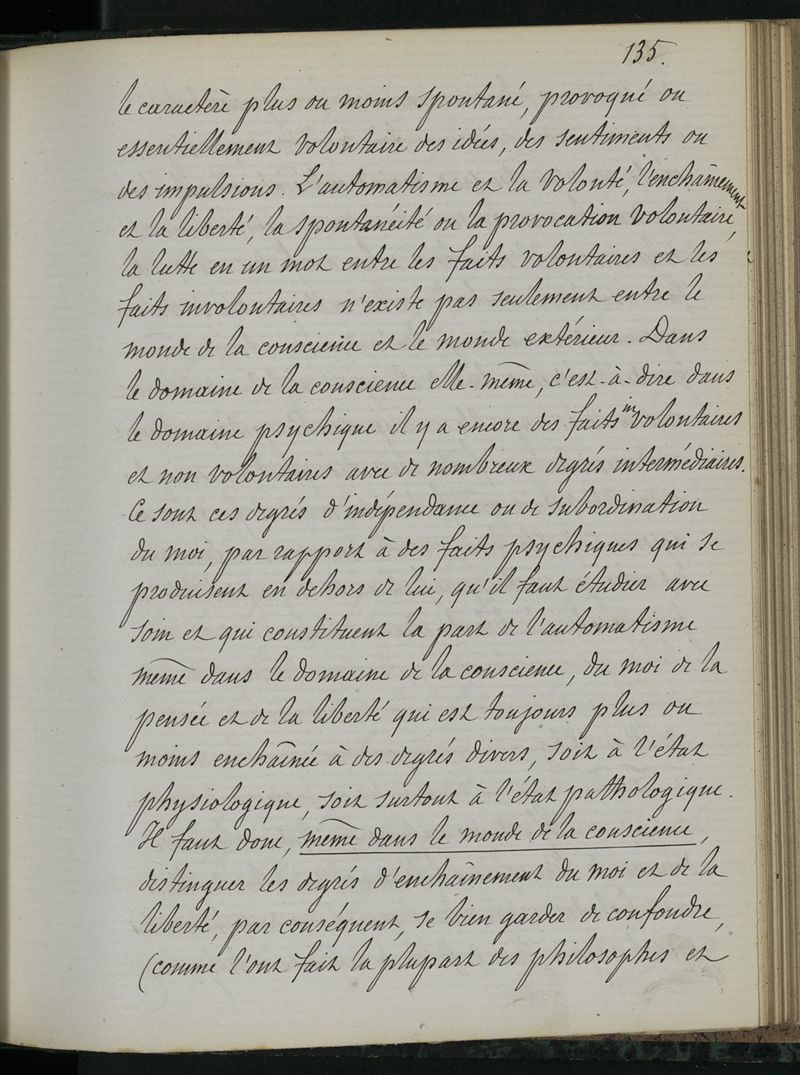 135.
le caractère plus ou moins spontané, provoqué ou
essentiellement volontaire des idées, des sentiments ou
des impulsions. L'automatisme et la volonté, l'enchaînement
et la liberté, la spontanéité ou la provocation volontaire,
la lutte en un mot entre les faits volontaires et les
faits involontaires n'existe pas seulement entre le
monde de la conscience et le monde extérieur. Dans
le domaine de la conscience elle-même, c'est-à-dire dans
le domaine psychique il y a encore des faits involontaires
et non volontaires avec de nombreux degrés intermédiaires.
Ce sont ces degrés d'indépendance ou de subordination
du moi, par rapport à des faits psychiques qui se
produisent en dehors de lui, qu'il faut étudier avec
soin et qui constituent la part de l'automatisme
même dans le domaine de la conscience, du moi de la
pensée et de la liberté qui est toujours plus ou
moins enchaînée à des degrés divers, soit à l'état
physiologique, soit surtout à l'état pathologique.
Il faut donc, même dans le monde de la conscience,
distinguer les degrés d'enchaînement du moi et de la
liberté, par conséquent, se bien garder de confondre,
(comme l'ont fait la plupart des philosophes et